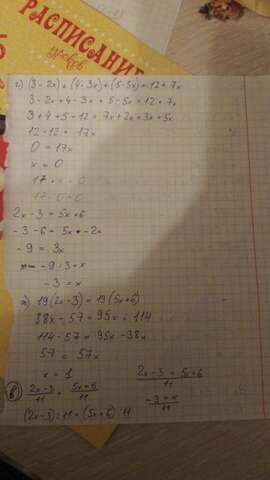 РАСПИСАНИЕ
уроков
г) (3-2x)+(4-3x)+(5-5x)=12+7x
3-2x+4-3x+5-5x=12+7x
3+4+5-12=7x+2x+3x+5x
12-12=17x
0=17x
x=0
2x-3=5x+6
-3-6=5x-2x
-9=3x
-9:3=x
-3=x
19(2x-3)=19(5x+6)
38x-57=95x+114
114-57=95x-38x
57=57x
x=1
в) (2x-3)/11=(5x+6)/11
(2x-3):11=(5x+6):11